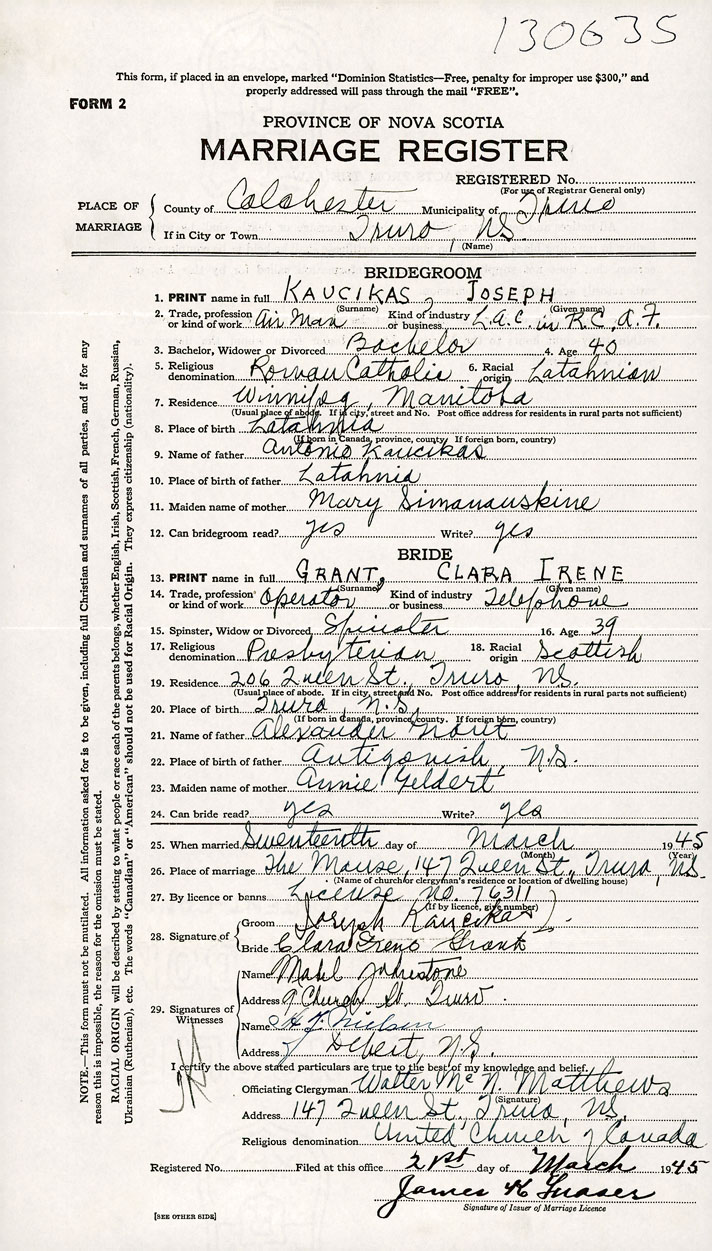 130635
This form, if placed in an envelope, marked "Dominion Statistics—Free, penalty for improper use $300," and
properly addressed will pass through the mail "FREE".
FORM 2
PROVINCE OF NOVA SCOTIA
MARRIAGE REGISTER
REGISTERED No.
(For use of Registrar General only)
PLACE OF MARRIAGE
County of Colchester Municipality of Truro
If in City or Town Truro, NS.
(Name)
BRIDEGROOM
1. PRINT name in full KAUCIKAS, JOSEPH
(Surname) (Given name)
2. Trade, profession or kind of work Air Man Kind of industry or business L.A.C. in R.C.A.F.
3. Bachelor, Widower or Divorced Bachelor 4. Age 40
5. Religious denomination Roman Catholic 6. Racial origin Latahnian
7. Residence Winnipeg, Manitoba
(Usual place of abode. If in city, street and No. Post office address for residents in rural parts not sufficient)
8. Place of birth Latahnia
(If born in Canada, province, county. If foreign born, country)
9. Name of father Antonio Kaucikas
10. Place of birth of father Latahnia
11. Maiden name of mother Mary Simanauskine
12. Can bridegroom read? yes Write? yes
BRIDE
13. PRINT name in full GRANT, CLARA IRENE
(Surname) (Given name)
14. Trade, profession or kind of work Operator Kind of industry or business Telephone
15. Spinster, Widow or Divorced Spinster 16. Age 39
17. Religious denomination Presbyterian 18. Racial origin Scottish
19. Residence 206 Queen St., Truro, NS.
(Usual place of abode. If in city, street and No. Post office address for residents in rural parts not sufficient)
20. Place of birth Truro, N.S.
(If born in Canada, province, county. If foreign born, country)
21. Name of father Alexander Grant
22. Place of birth of father Antigonish, N.S.
23. Maiden name of mother Annie Geldert
24. Can bride read? yes Write? yes
25. When married Seventeenth day of March 1945
(Month) (Year)
26. Place of marriage The Manse, 147 Queen St., Truro, NS.
(Name of church or clergyman's residence or location of dwelling house)
27. By licence or banns License No. 76311
(If by licence, give number)
28. Signature of
Groom Joseph Kaucikas
Bride Clara Irene Grant
29. Signatures of Witnesses
Name Mabl Johnstone
Address 9 Church St. Truro.
Name Nielsen
Address Debert, N.S.
I certify the above stated particulars are true to the best of my knowledge and belief.
Officiating Clergyman Walter McN. Matthews
(Signature)
Address 147 Queen St., Truro, NS.
Religious denomination United Church of Canada
Registered No. Filed at this office 21st day of March 1945
James K Fraser
Signature of Issuer of Marriage Licence
[SEE OTHER SIDE]
NOTE.—This form must not be mutilated. All information asked for is to be given, including full Christian and surnames of all parties, and if for any
reason this is impossible, the reason for the omission must be stated.
RACIAL ORIGIN will be described by stating to what people or race each of the parents belongs, whether English, Irish, Scottish, French, German, Russian,
Ukrainian (Ruthenian), etc. The words "Canadian" or "American" should not be used for Racial Origin. They express citizenship (nationality).